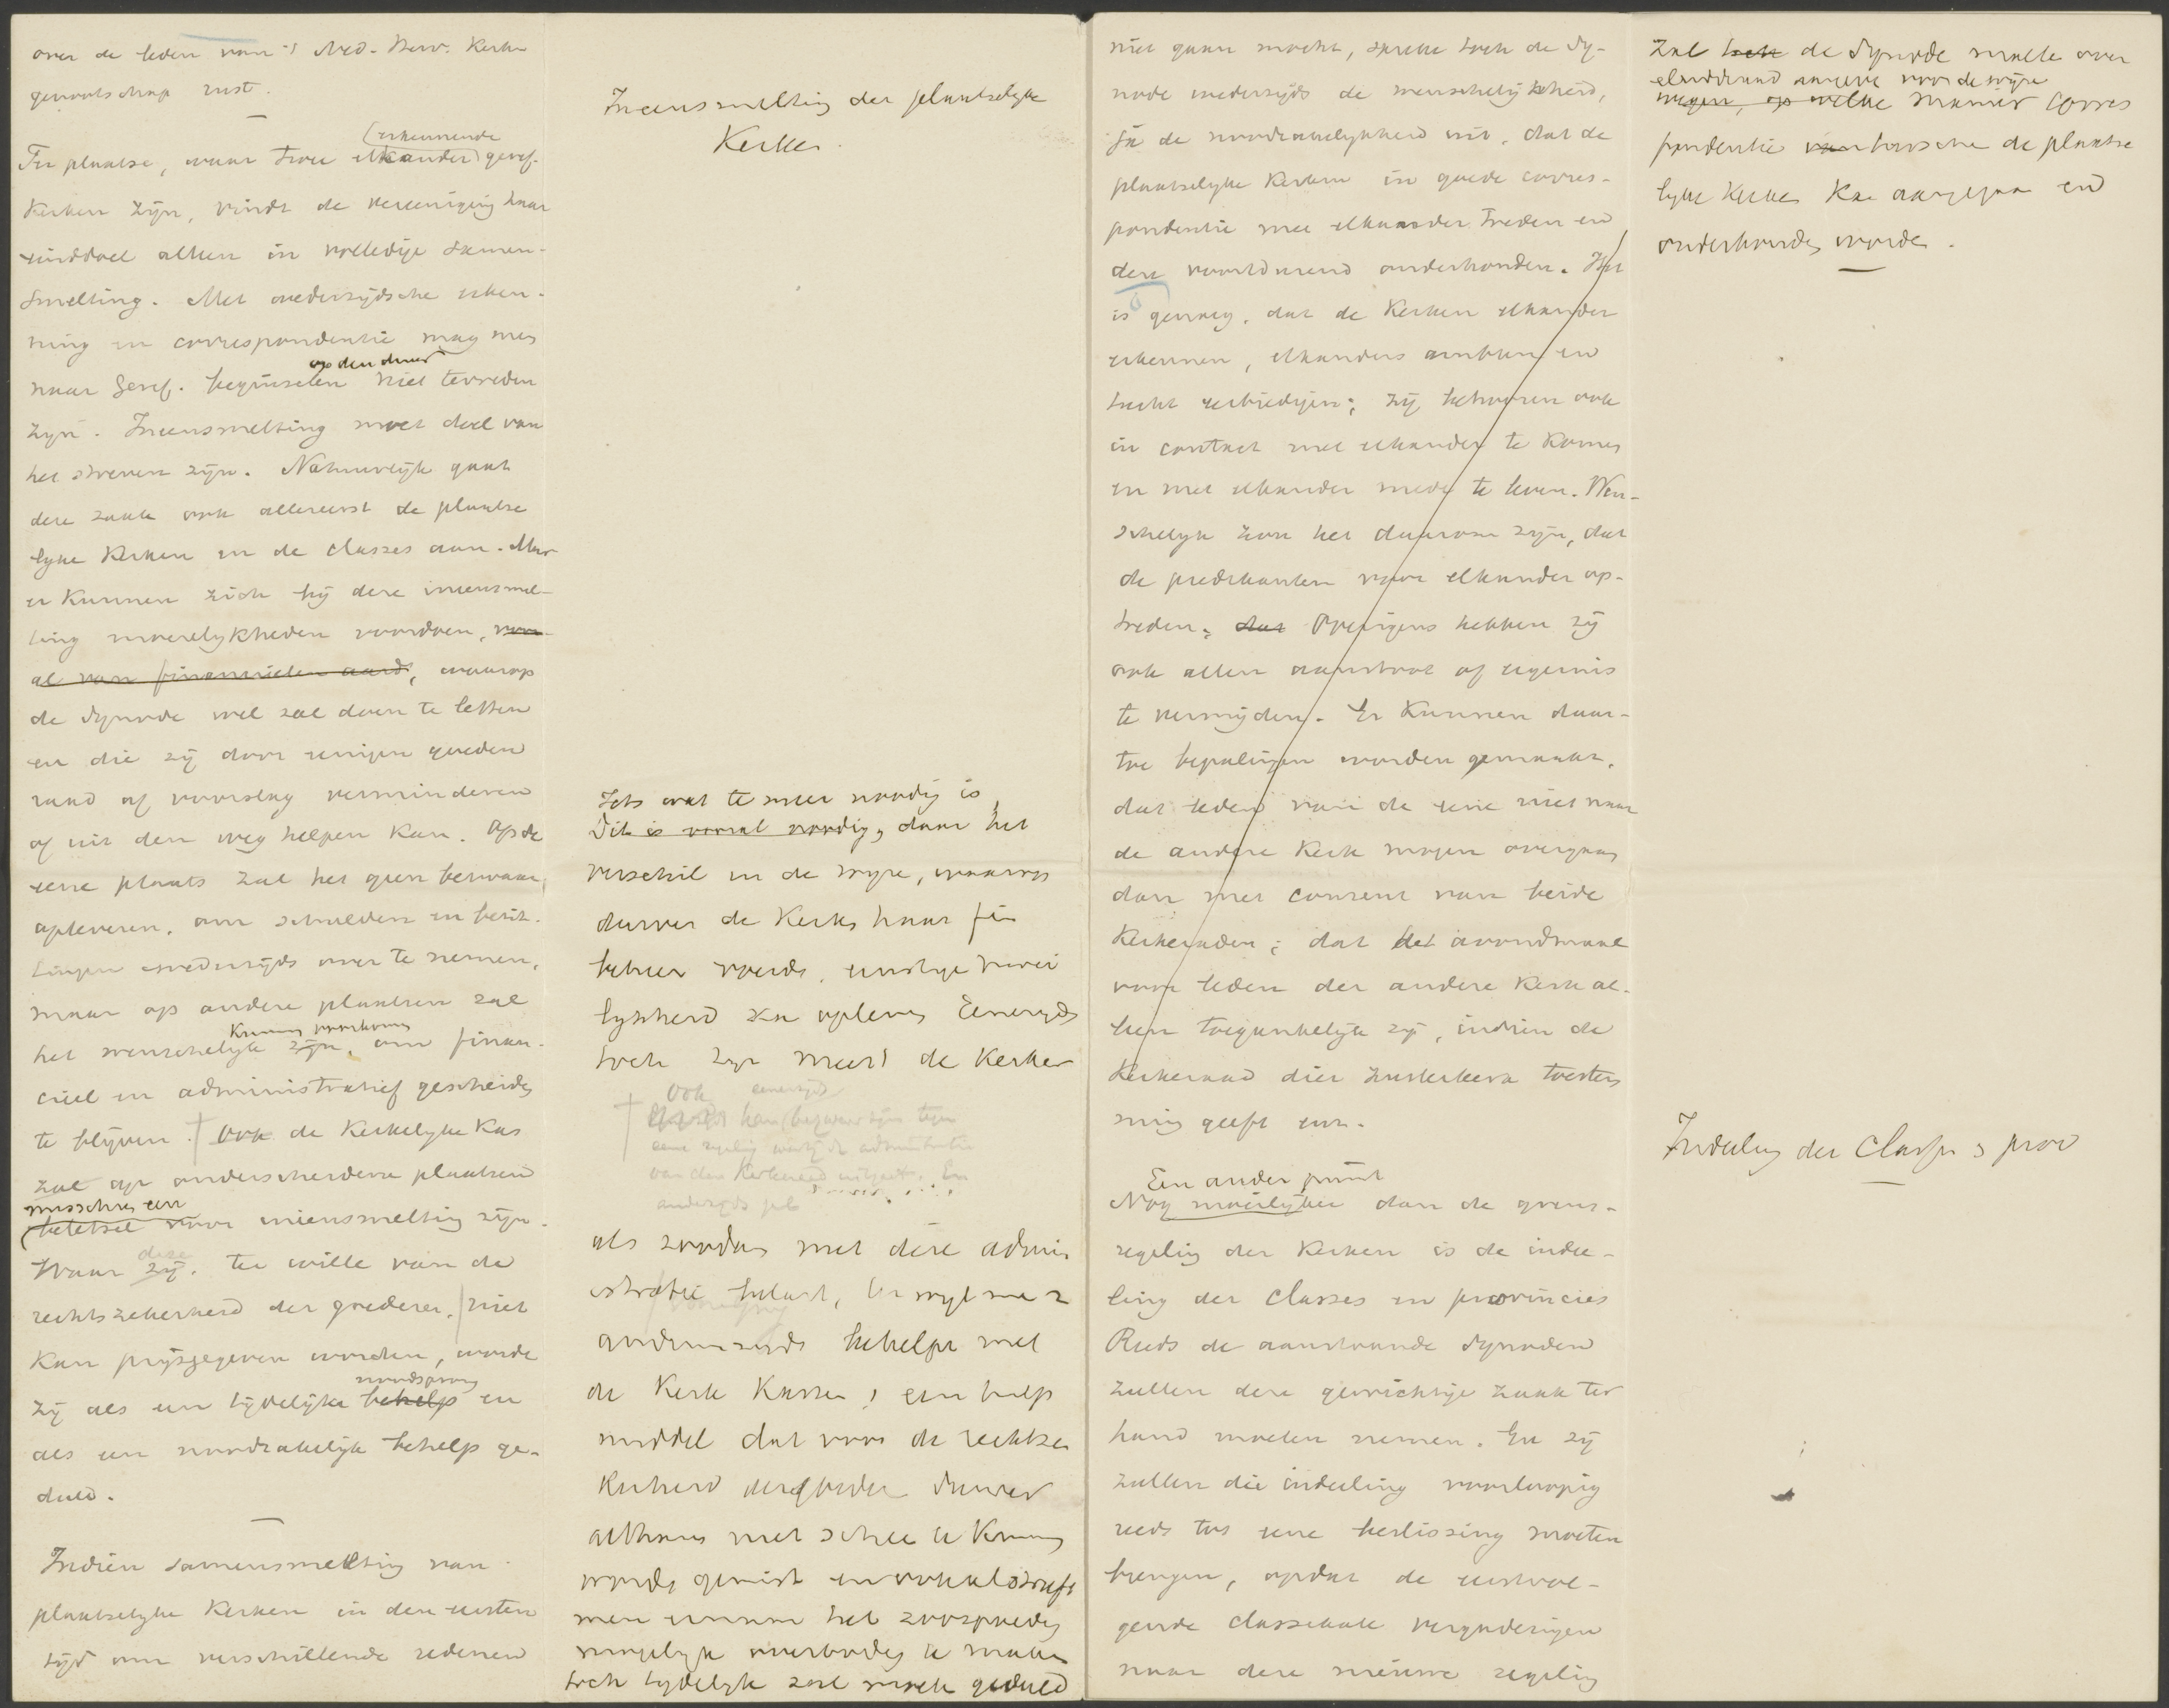 over de leden van 't Ned. Herv. Kerk-
genootschap rust.
(erkennende
Ter plaatse, waar twee elkander geref.
Kerken zijn, vindt de vereeniging haar
einddoel alleen in volledige samen-
smelting. Met wederzijdsche erken-
ning en correspondentie mag men
op den duur
naar Geref. beginselen niet tevreden
zijn. Ineensmelting moet doel van
het streven zijn. Natuurlijk gaat
deze zaak ook allereerst de plaatse
lijke Kerken en de classes aan. Maar
er kunnen zich bij deze ineensmel-
ting moeielijkheden voordoen, voor-
al van financieelen aard, waarop
de Synode wel zal doen te letten
en die zij door eenigen goeden
raad of voorslag verminderen
of uit den weg helpen kan. Op de
eene plaats zal het geen bezwaar
opleveren, om schulden en bezit-
tingen wederzijds over te nemen,
maar op andere plaatsen zal
kunnen voorkomen
het wenschelijk zijn, om finan-
cieel en administratief gescheiden
te blijven. Ook de Kerkelijke Kas
zal op onderscheidene plaatsen
misschien een
beletsel voor ineensmelting zijn.
deze
Waar zij, ter wille van de
rechtszekerheid der goederen, niet
kan prijsgegeven worden, worde
noodsprong
zij als een tijdelijke behelp en
als een noodzakelijk behelp ge-
duld.
Indien samensmelting van
plaatselijke Kerken in den eersten
tijd om verschillende redenen
Ineensmelting der plaatselijke
Kerken.
Iets wat te meer noodig is,
Dit is vooral noodig, daar het
verschil in de wijze, waarop
de Kerken haar fin
beheer voerde, ernstige moei
lijkheid kan opleveren Eenerzijds
toch zijn meest de Kerken
Ook eenerzijds
kan bezwaar zijn tegen
eene regeling waarbij de administratie
van den Kerkeraad uitgaat. En
anderzijds
als zoodanig met deze admin
istratie belast, terwijl men
anderzijds behelpt met
de Kerk Kassen, een hulp
middel dat voor de rechtsze
kerheid der goederen
althans niet scheen te kunnen
worden gemist en ook al
men het zoo spoedig
mogelijk overbodig te maken
toch tijdelijk zal moeten geduld
niet gaan mocht, spreke toch de Sy-
node wederzijds de wenschelijkheid,
ja de noodzakelijkheid uit, dat de
plaatselijke Kerken in goede corres-
pondentie met elkander treden en
deze voortdurend onderhouden. Het
is genoeg, dat de Kerken elkander
erkennen, elkanders ambten en
tucht eerbiedigen; zij behooren ook
in contact met elkander te komen
en met elkander mede te leven. Wen-
schelijk zou het daarom zijn, dat
de predikanten voor elkander op-
treden; dat Overigens hebben zij
ook allen aanstoot of ergernis
te vermijden. Er kunnen daar-
toe bepalingen worden gemaakt,
dat leden van de eene niet naar
de andere Kerk mogen overgaan
dan met consent van beide
Kerkeraden; dat het avondmaal
voor leden der andere Kerk al-
leen toegankelijk zij, indien de
Kerkeraad dier zusterkerk toestem
ming geeft enz.
Een ander punt
Nog moeilijker dan de grens-
regeling der Kerken is de indee-
ling der classes en provincies
Reeds de aanstaande Synoden
zullen deze gewichtige zaak ter
hand moeten nemen. En zij
zullen die indeeling voorloopig
reeds tot eene beslissing moeten
brengen, opdat de eerstvol-
gende classicale vergaderingen
naar deze nieuwe regeling
zal toch de Synode raad over
aangeven voor de wijze
wegen, op welke manier corres
pondentie van tusschen de plaatse
lijke Kerken kan aangegaan en
onderhouden worden.
Indeeling der Classes & prov